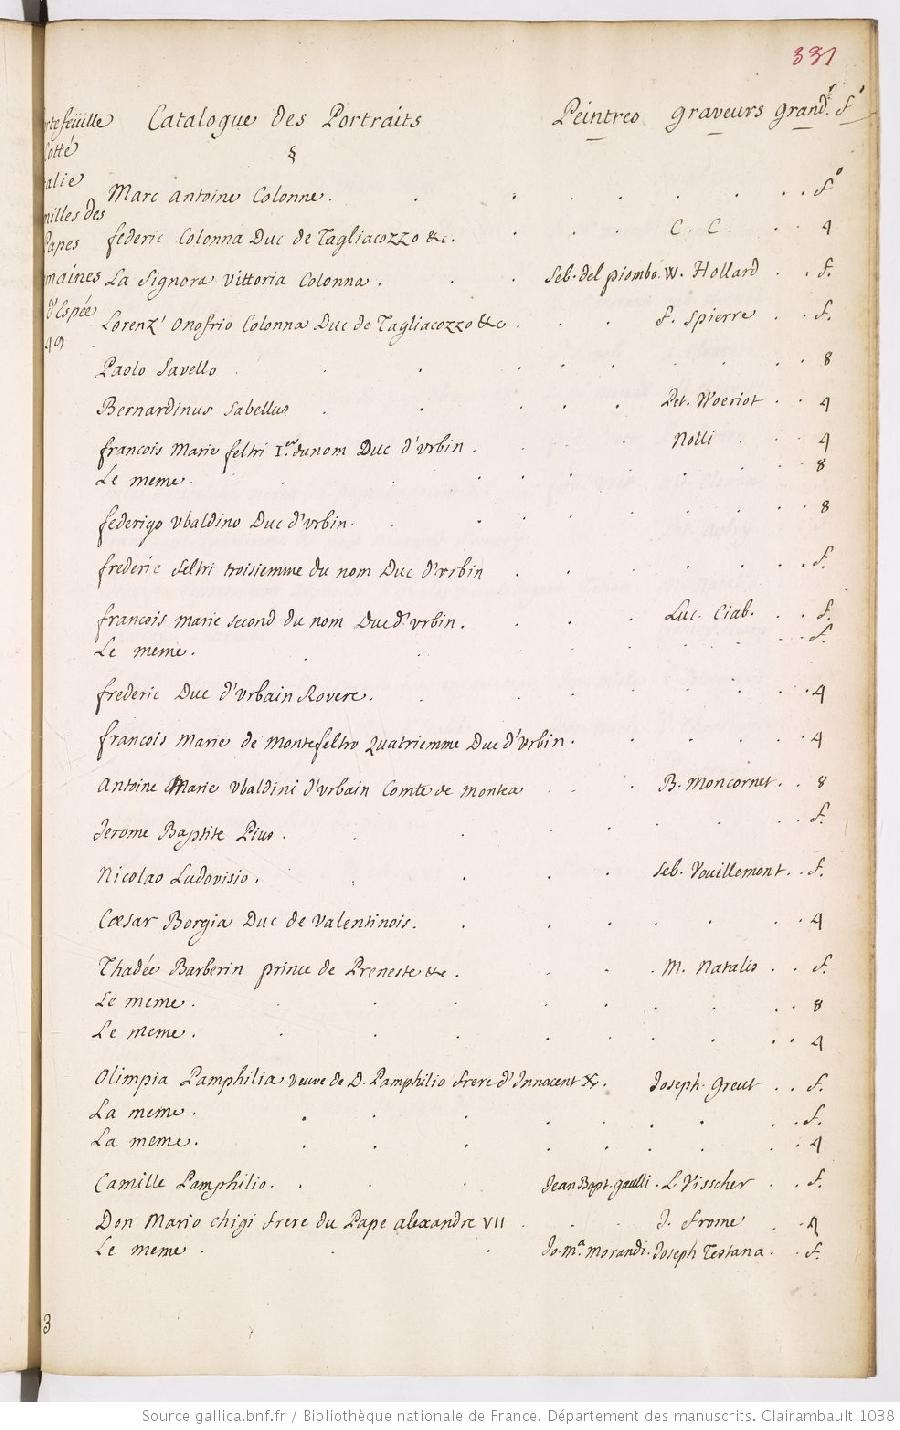 331
Catalogue des Portraits Peintres graveurs grandr. fo
Cotté
§
Marc Antoine Colonne. fo
federic Colonna Duc de Tagliacozzo &c. C. C. 4
La Signora Vittoria Colonna. Seb. del piombo. W. Hollard f.
Lorenz' Onofrio Colonna Duc de Tagliacozzo &c f. Spierre f.
d'Espée
49
Paolo Savello 8
Bernardinus Sabellus Pet. Woeriot 4
francois Marie feltri 1er. du nom Duc d'Urbin. Nolli 4
Le meme. 8
federigo Ubaldino Duc d'urbin. 8
frederic feltri troisiemme du nom Duc d'Urbin f.
francois marie second du nom Duc d'urbin. Luc. Ciab. f.
Le meme. f.
frederic Duc d'Urbain Rovere. 4
francois Marie de Montefeltro Quatriemme Duc d'Urbin. 4
Antoine Marie Ubaldini d'Urbain Comte de montea B. Moncornet. 8
Jerome Baptite Pius. f.
Nicolao Ludovisio. Seb. Vouillemont. f.
Cæsar Borgia Duc de Valentinois. 4
Thadée Barberin prince de Preneste &c. M. Natalis f.
Le meme. 8
Le meme. 4
Olimpia Pamphilia veuve de D. Pamphilio frere d'Innocent X. Joseph. Greut f.
La meme. f.
La meme. 4
Camille Pamphilio. Jean Bapt. gaulli. L. Visscher f.
Don Mario chigi frere du Pape alexandre VII J. frome 4
Le meme Jo. ma. morandi. Joseph Testana. f.
3
Source gallica.bnf.fr / Bibliothèque nationale de France. Département des manuscrits. Clairambault 1038